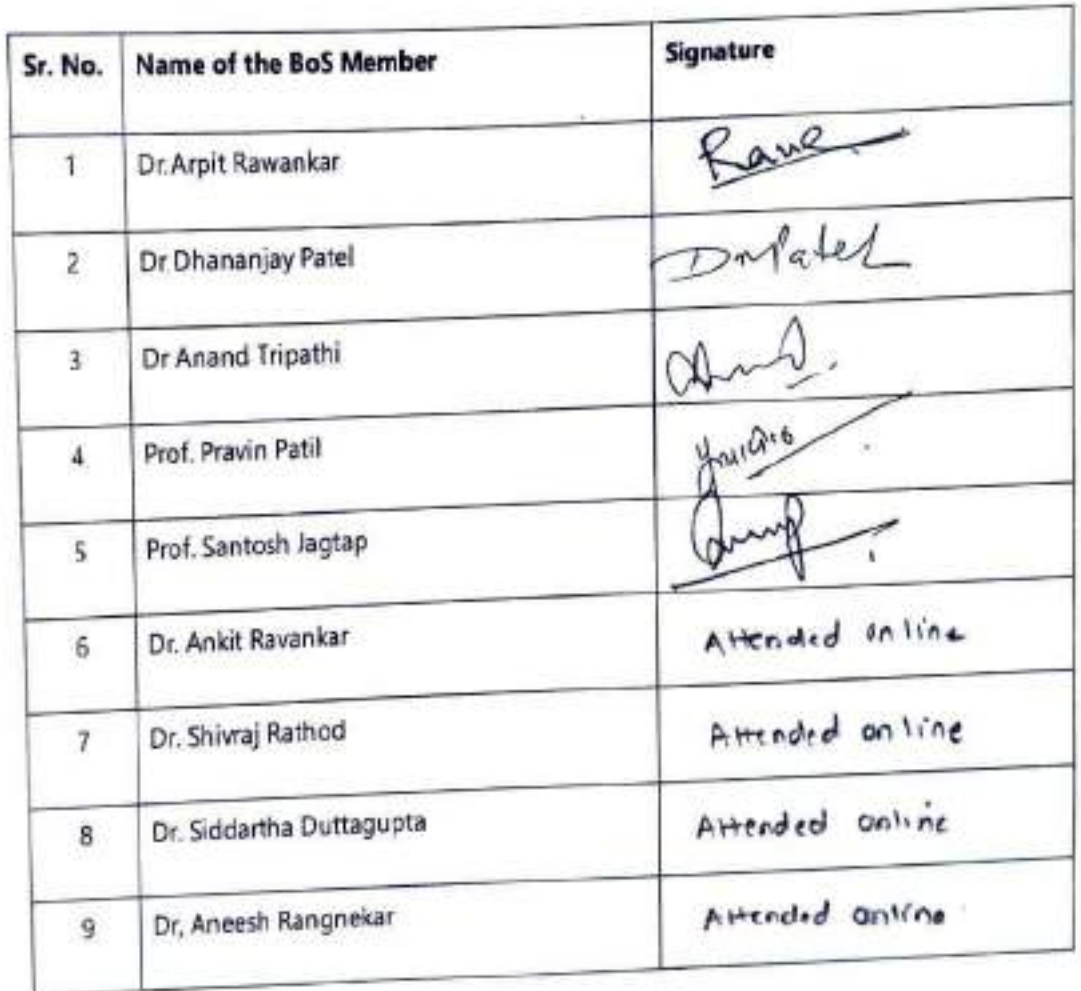 Sr. No. Name of the BoS Member Signature
1 Dr.Arpit Rawankar
2 Dr Dhananjay Patel DmPatel
3 Dr Anand Tripathi
4 Prof. Pravin Patil
5 Prof. Santosh Jagtap
6 Dr. Ankit Ravankar Attended online
7 Dr. Shivraj Rathod Attended online
8 Dr. Siddartha Duttagupta Attended online
9 Dr, Aneesh Rangnekar Attended online